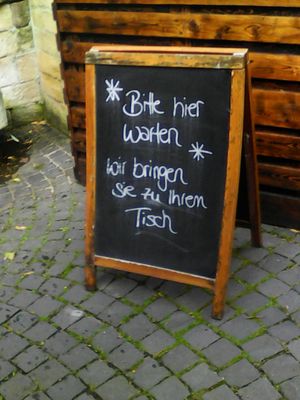 * Bitte hier
warten *
wir bringen
Sie zu Ihrem
Tisch